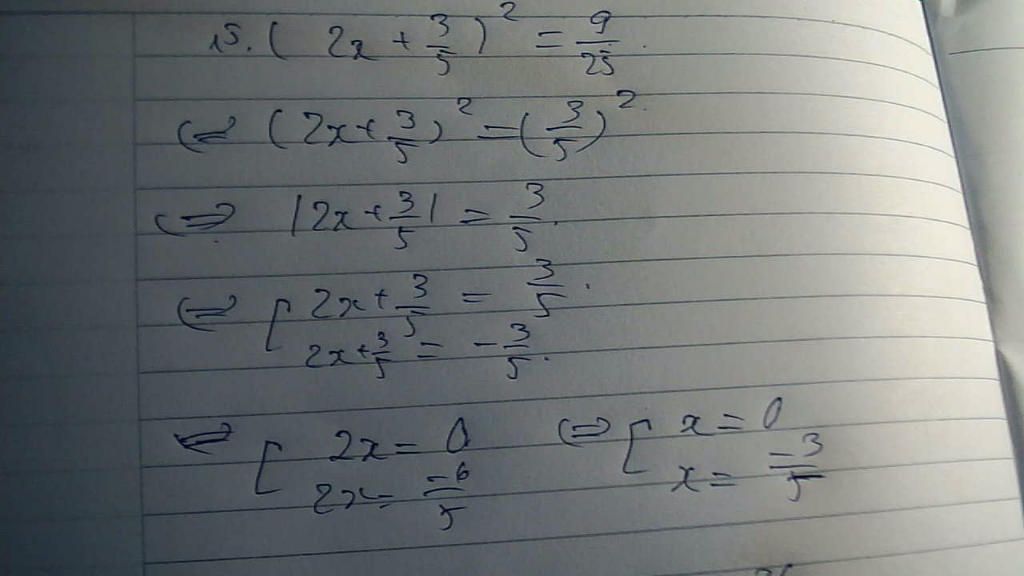 15. (2x + 3/5)² = 9/25.
⇔ (2x + 3/5)² = (3/5)².
⇔ |2x + 3/5| = 3/5.
⇔ [ 2x + 3/5 = 3/5.
2x + 3/5 = - 3/5.
⇔ [ 2x = 0 ⇔ [ x = 0
2x = -6/5 x = -3/5